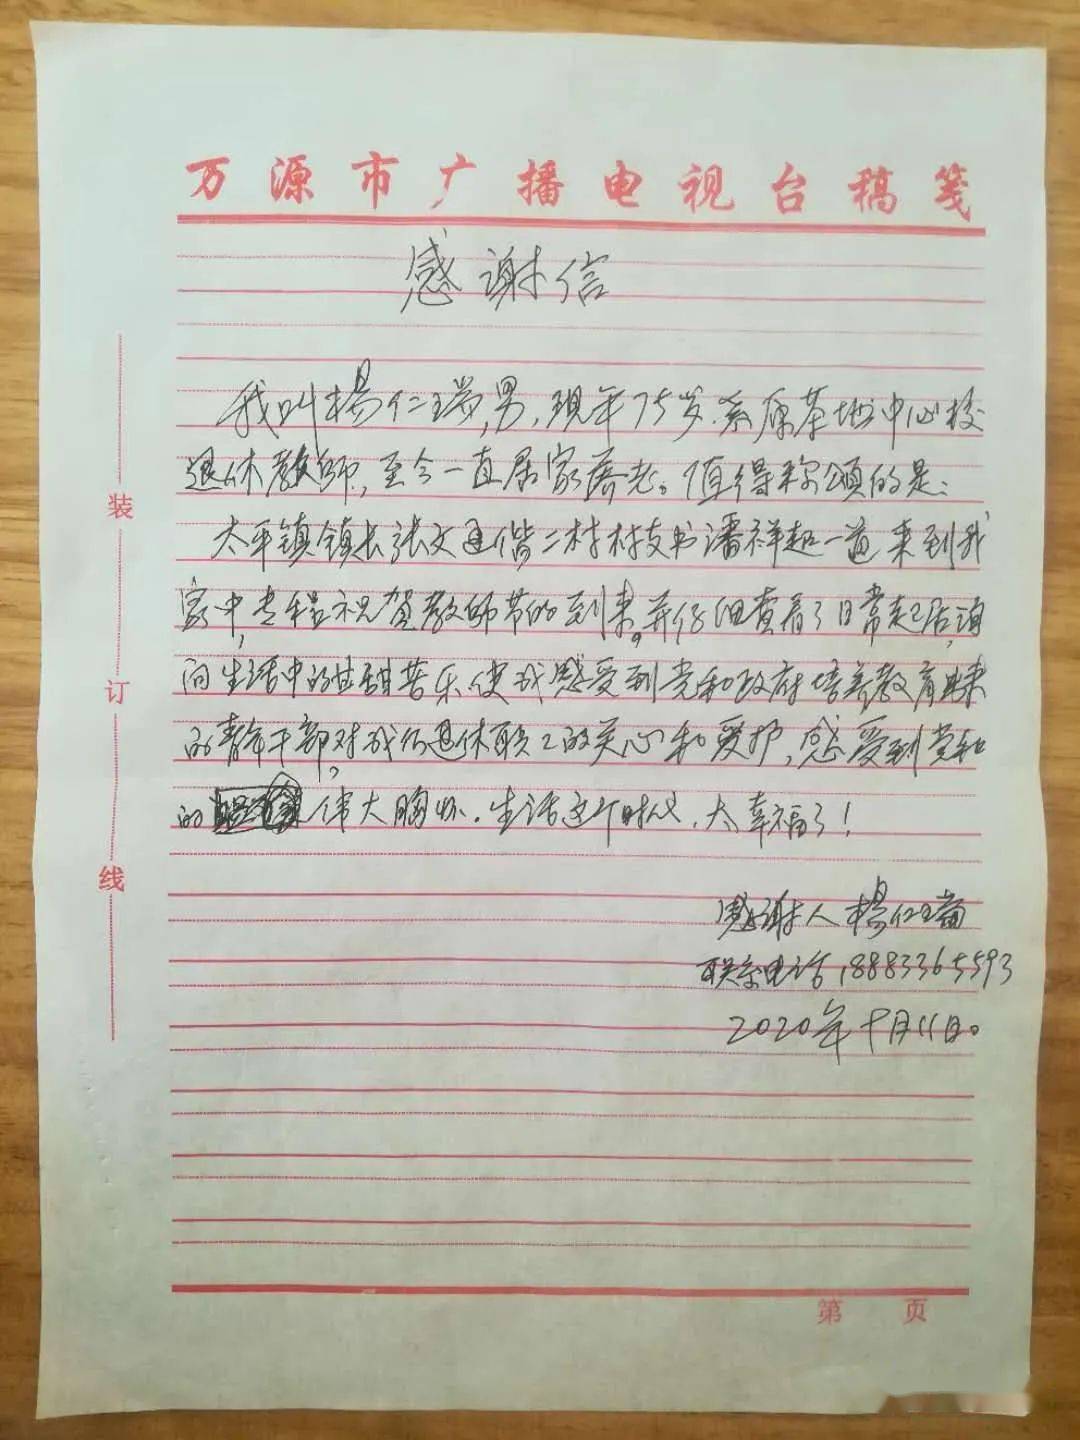 万源市广播电视台稿笺
感谢信
我叫楊仁瑞,男,现年75岁.系原茶垭中心校
退休教师,至今一直居家养老。值得称颂的是:
太平镇镇长张文通偕二村村支书潘祥起一道来到我
家中,专程祝贺教师节的到来。并仔细查看了日常起居,询
问生活中的甘甜苦乐使我感受到党和政府培养教育出来
的青年干部,对我们退休职工的关心和爱护,感受到党和
的 伟大胸怀.生活这个时代,太幸福了!
感谢人 楊仁瑞
联系电话 18883365593
2020年十月11日。
装
订
线
第 页